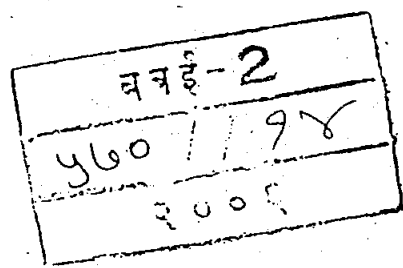 बबई-2
५७० / १४
२००९